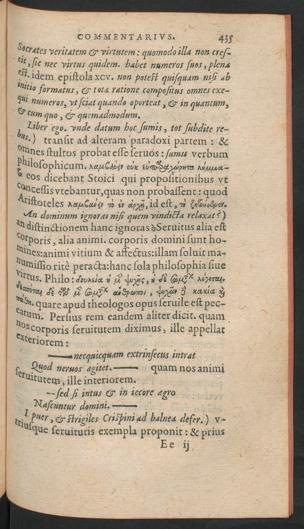 COMMENTARIVS. 435
Socrates veritatem & virtutem: quomodo illa non cres-
cit, sic nec virtus quidem. habet numeros suos, plena
est. idem epistola xcv. non potest quisquam nisi ab
initio formatus, & tota ratione compositus omnes exe-
qui numeros, vt sciat quando oporteat, & in quantum,
& cum quo, & quemadmodum.
Liber ego. vnde datum hoc sumis, tot subdite re-
bus.) transit ad alteram paradoxi partem: &
omnes stultos probat esse seruos: sumis verbum
philosophicum, λαμβάνειν
eos dicebant Stoici qui propositionibus vt
concessis vtebantur, quas non probassent: quod
Aristoteles λαμβάνειν τὸ ἐν ἀρχῇ, id est, τὸ ζητούμενον.
An dominum ignoras nisi quem vindicta relaxat?)
an distinctionem hanc ignoras? Seruitus alia est
corporis, alia animi. corporis domini sunt ho-
mines: animi vitium & affectus: illam soluit ma-
numissio ritè peracta: hanc sola philosophia siue
virtus. Philo: δουλεία
quare apud theologos opus seruile est pec-
catum. Persius rem eandem aliter dicit. quam
nos corporis seruitutem diximus, ille appellat
exteriorem:
—— necquicquam extrinsecus intrat
Quod neruos agitet. —— quam nos animi
seruitutem, ille interiorem.
—sed si intus & in iecore ægro
Nascuntur domini. ——
I puer, & strigiles Crispini ad balnea defer.) v-
triusque seruitutis exempla proponit: & prius
Ee ij